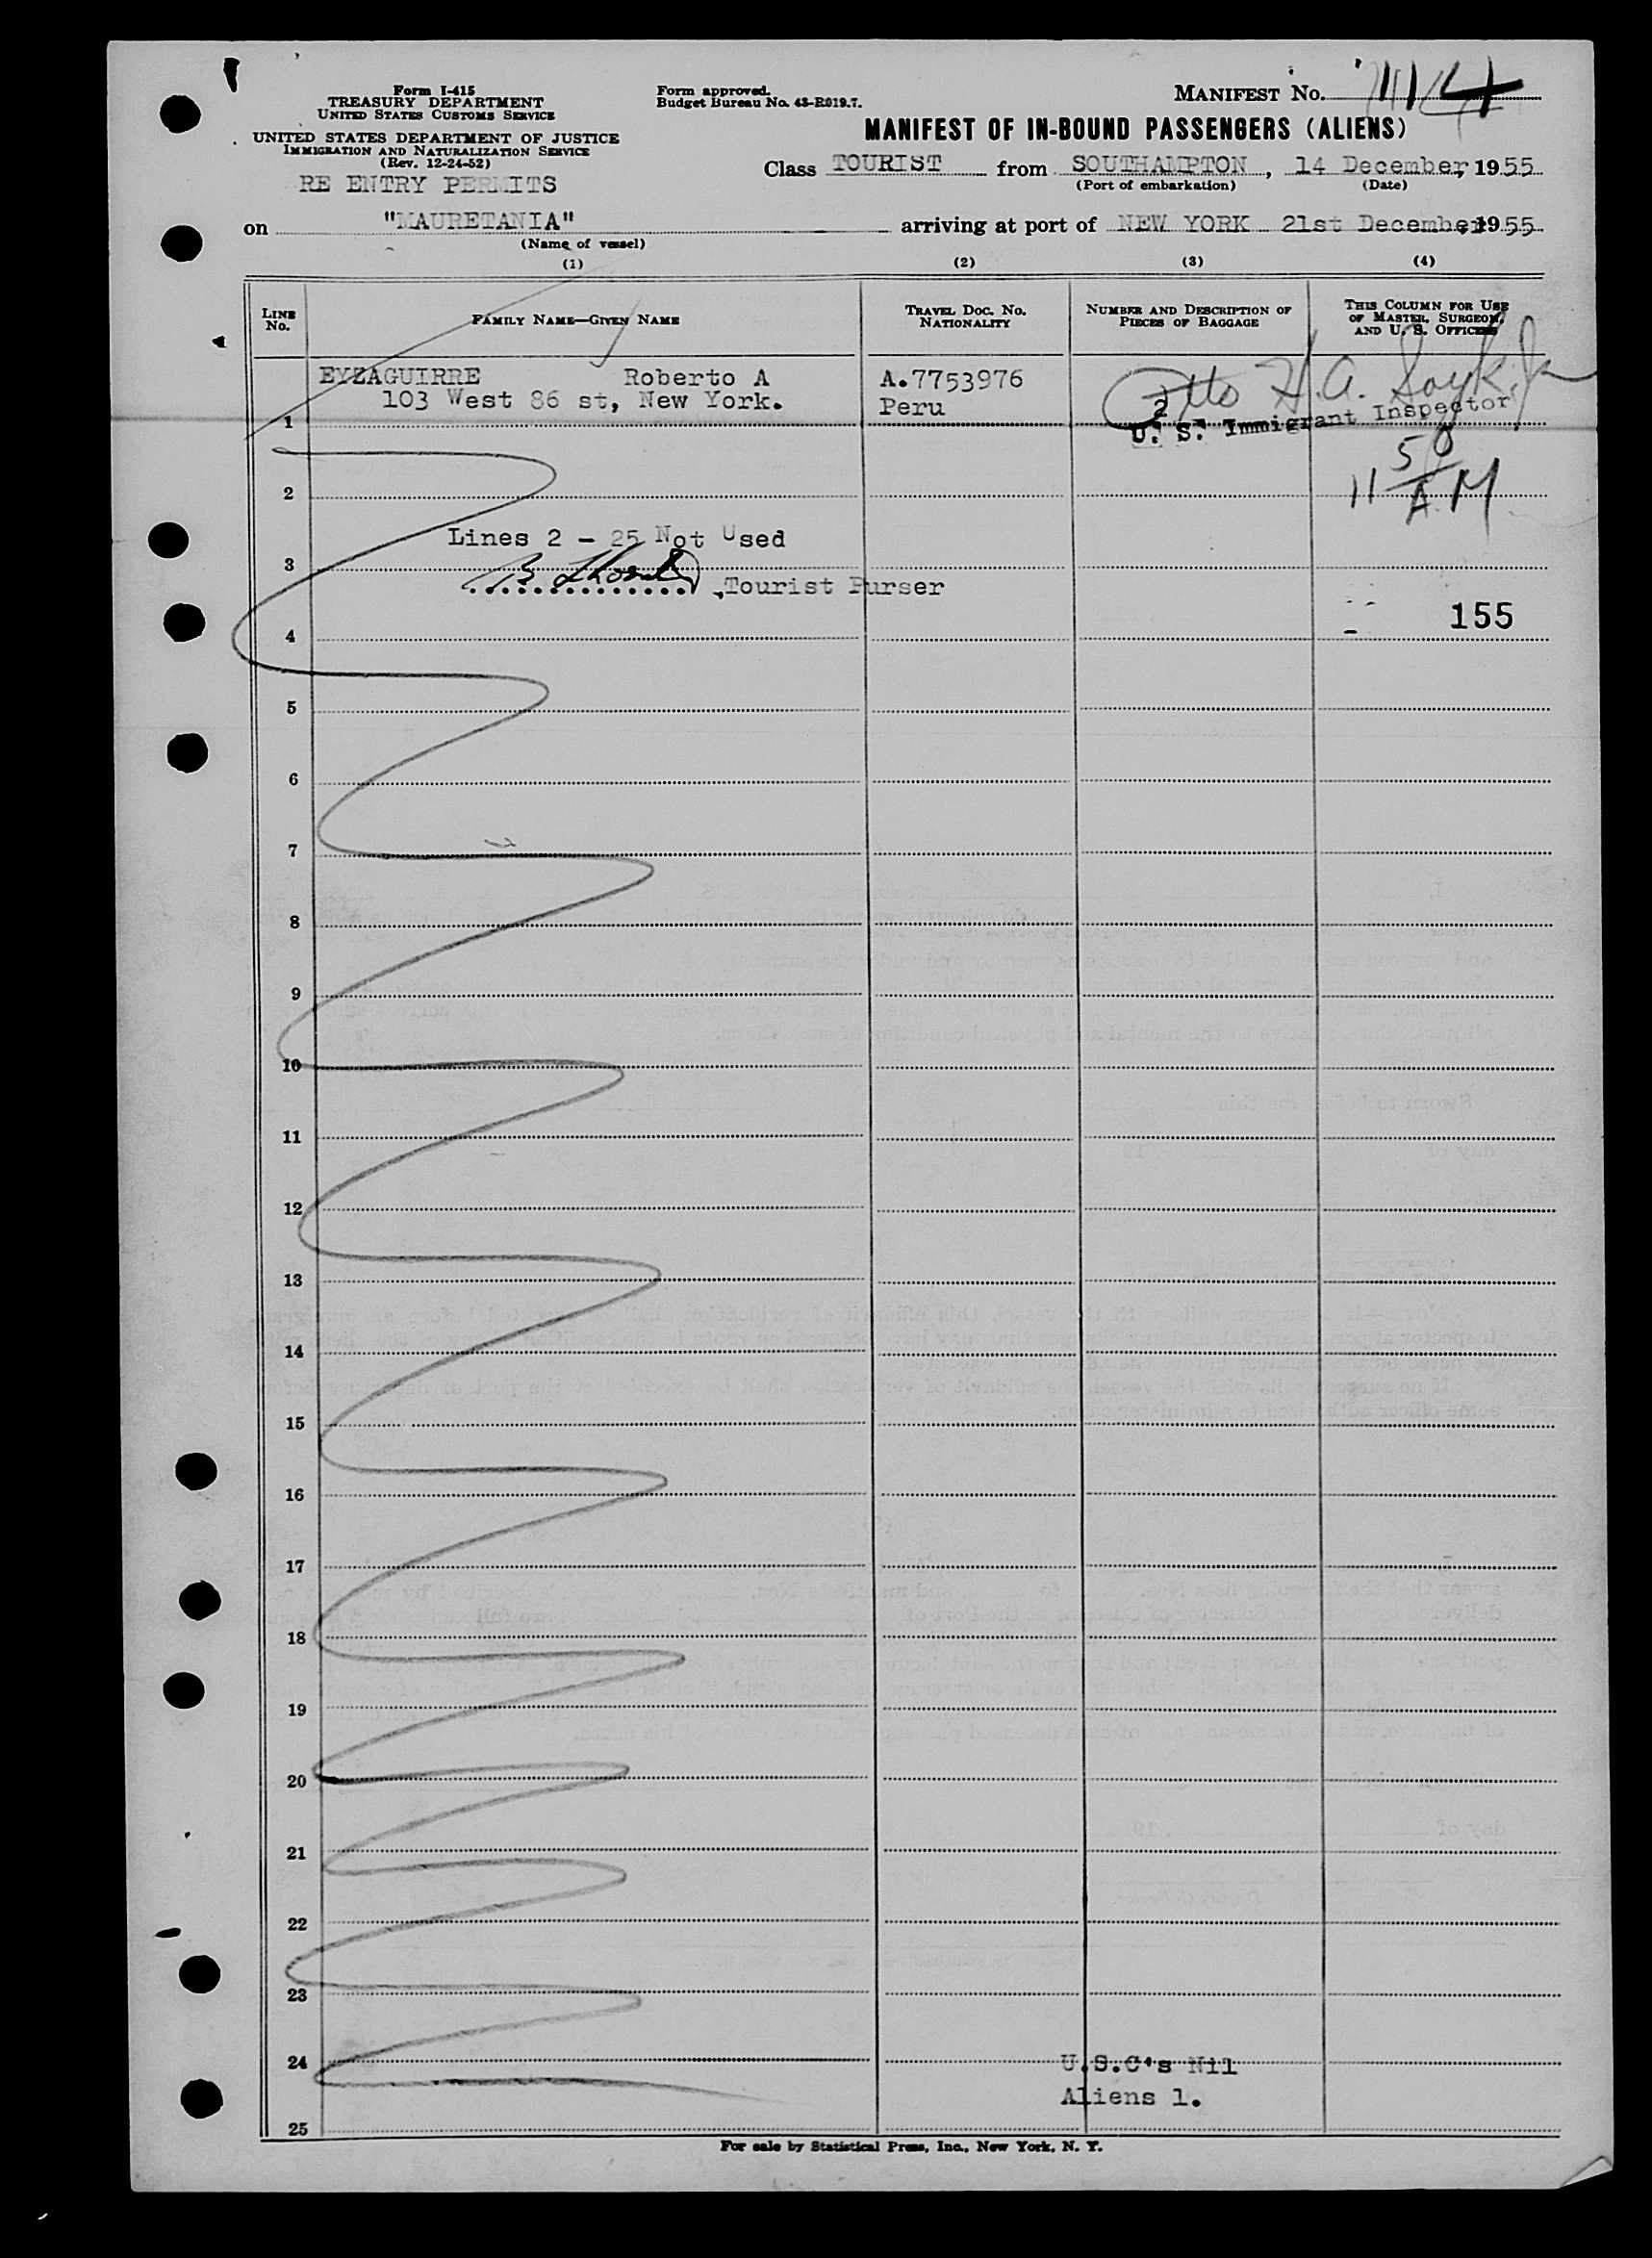 Form I-415
TREASURY DEPARTMENT
UNITED STATES CUSTOMS SERVICE
UNITED STATES DEPARTMENT OF JUSTICE
IMMIGRATION AND NATURALIZATION SERVICE
(Rev. 12-24-52)
RE ENTRY PERMITS
Form approved.
Budget Bureau No. 43-R019.7.
MANIFEST NO. 114
MANIFEST OF IN-BOUND PASSENGERS (ALIENS)
Class TOURIST from SOUTHAMPTON, 14 December, 1955
(Port of embarkation) (Date)
on "MAURETANIA" arriving at port of NEW YORK 21st December, 1955
(Name of vessel)
(1) (2) (3) (4)
LINE NO. FAMILY NAME—GIVEN NAME TRAVEL DOC. NO. NATIONALITY NUMBER AND DESCRIPTION OF PIECES OF BAGGAGE THIS COLUMN FOR USE OF MASTER, SURGEON, AND U. S. OFFICERS
EYZAGUIRRE Roberto A A.7753976
103 West 86 st, New York. Peru 2
1 U. S. Immigrant Inspector
11 50 A.M
2
Lines 2 - 25 Not Used
3
Tourist Purser
155
4
5
6
7
8
9
10
11
12
13
14
15
16
17
18
19
20
21
22
23
24 U.S.C's Nil
Aliens 1.
25
For sale by Statistical Press, Inc., New York, N. Y.